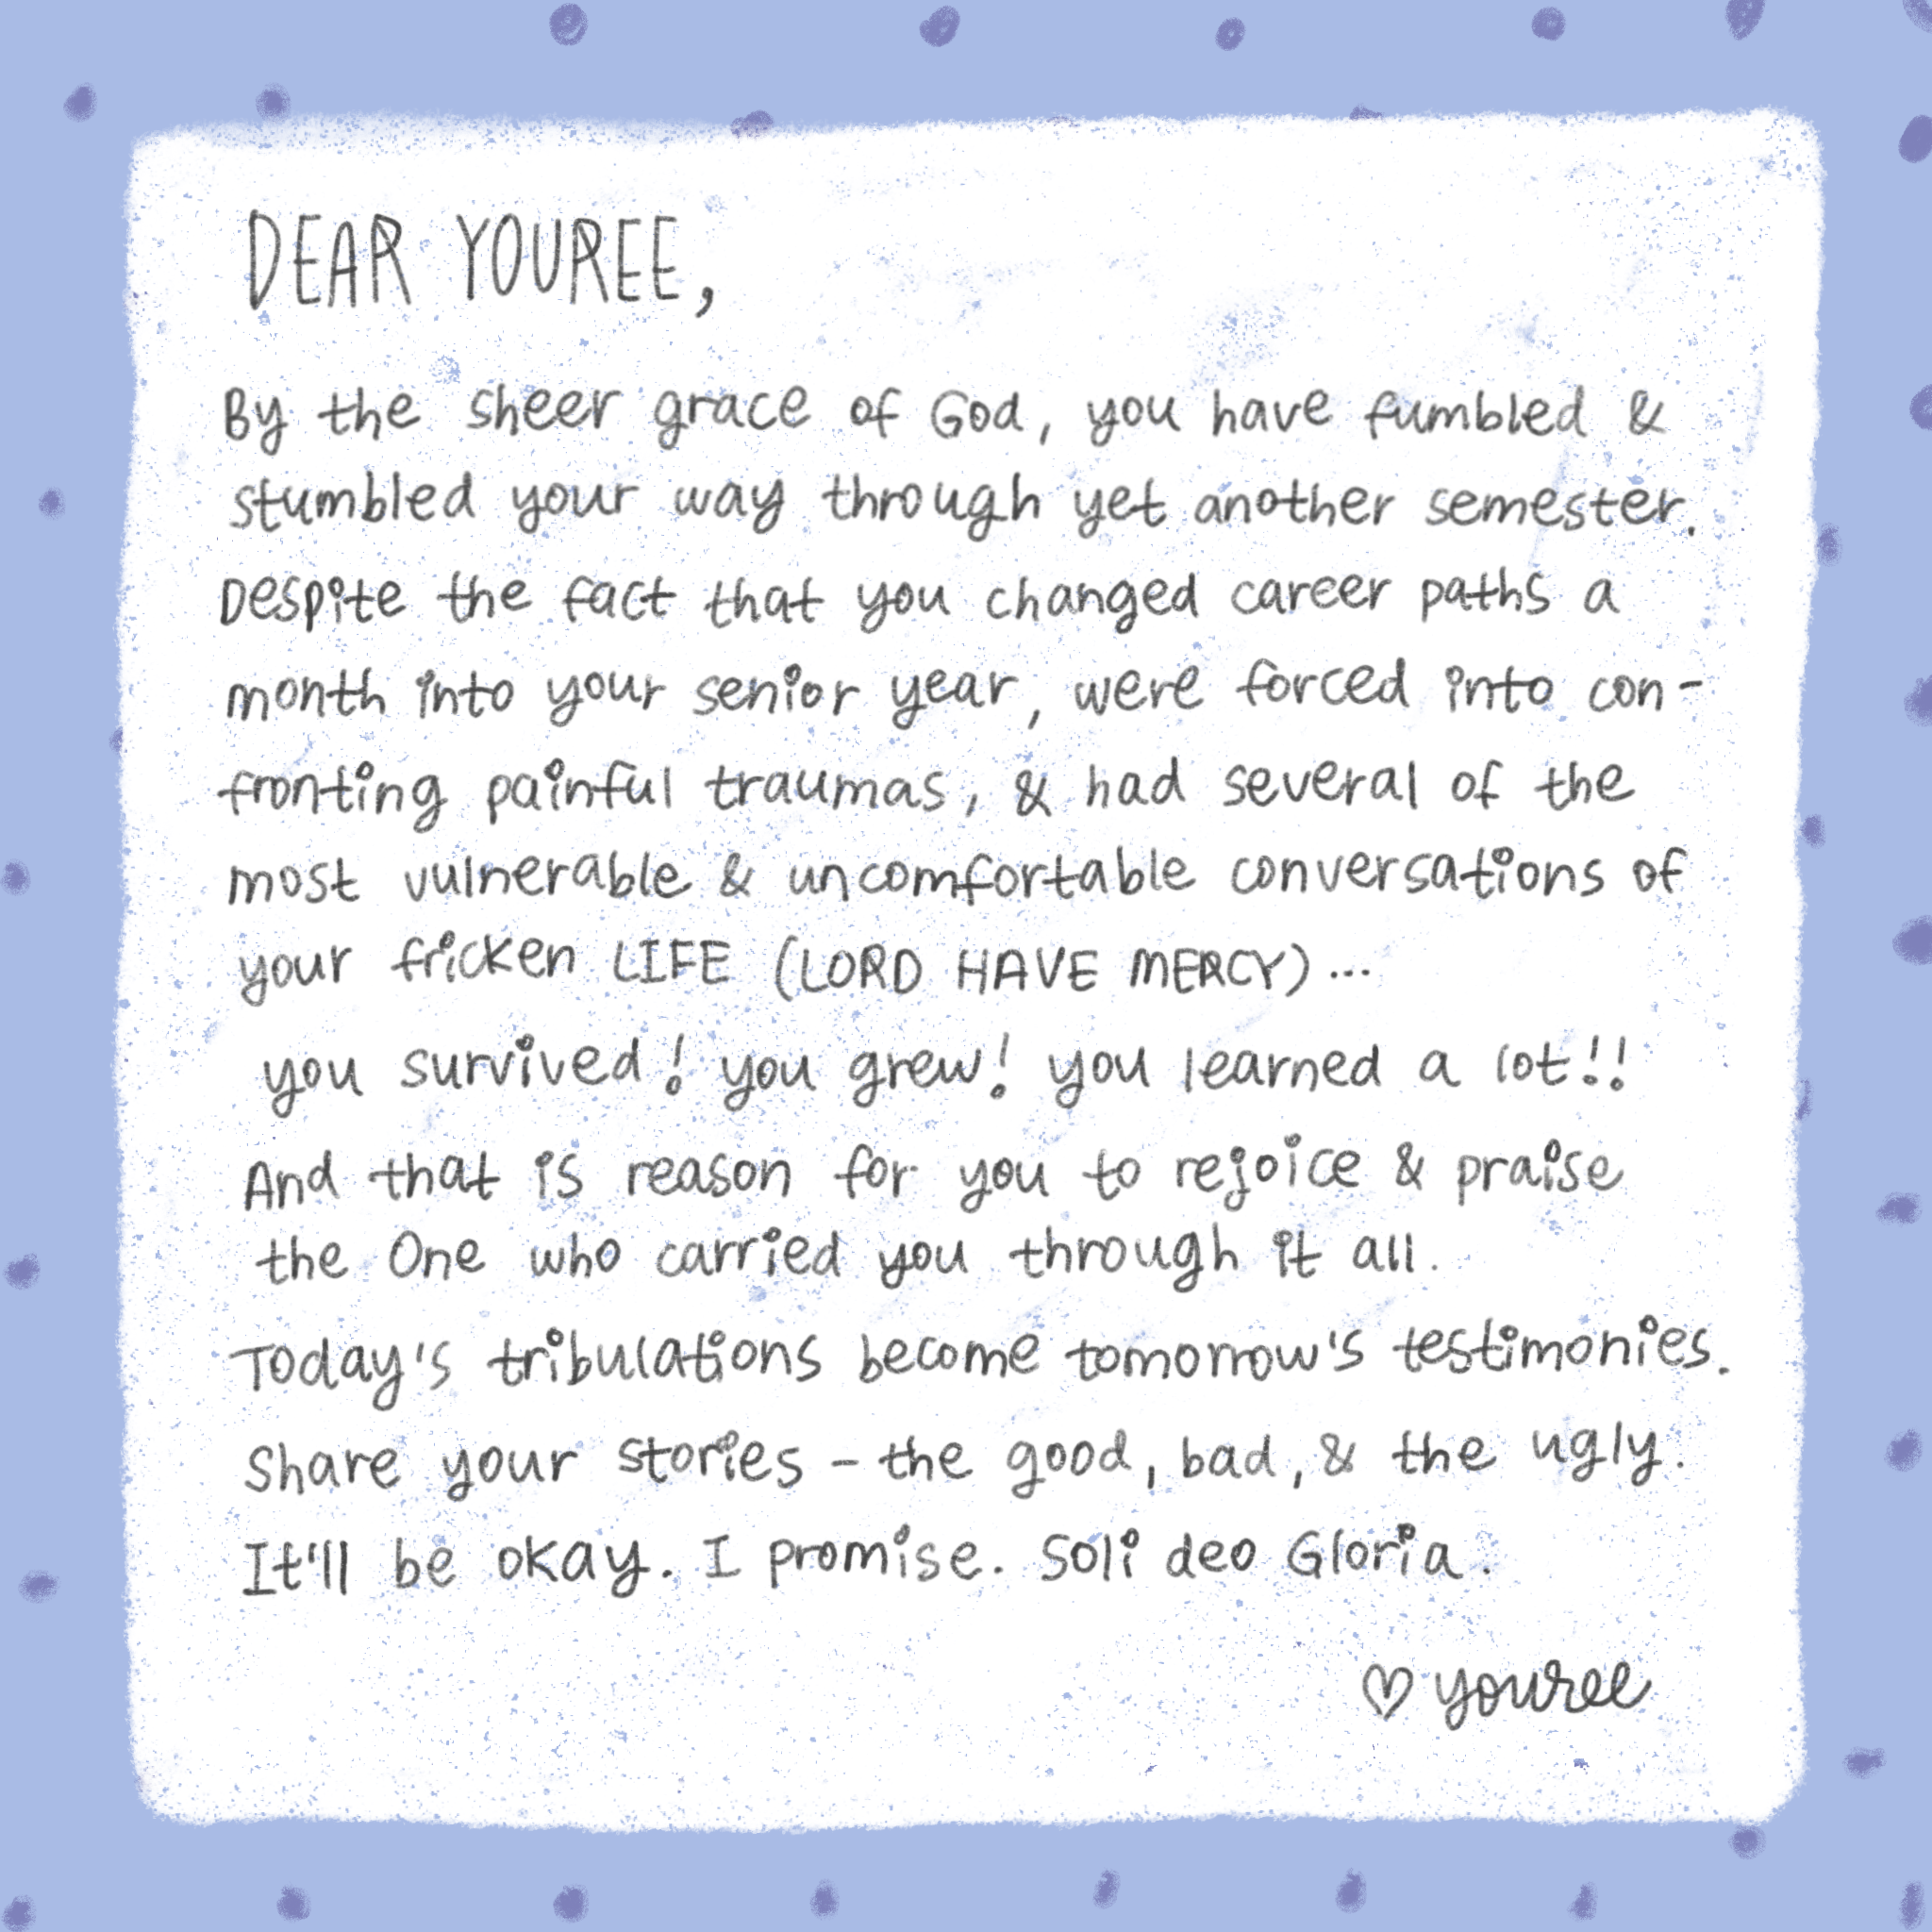 DEAR YOUREE,
By the sheer grace of God, you have fumbled &
stumbled your way through yet another semester.
Despite the fact that you changed career paths a
month into your senior year, were forced into con-
fronting painful traumas, & had several of the
most vulnerable & uncomfortable conversations of
your fricken LIFE (LORD HAVE MERCY)...
you survived! you grew! you learned a lot!!
And that is reason for you to rejoice & praise
the One who carried you through it all.
Today's tribulations become tomorrow's testimonies.
Share your stories - the good, bad, & the ugly.
It'll be okay. I promise. Soli deo Gloria.
♡ youree